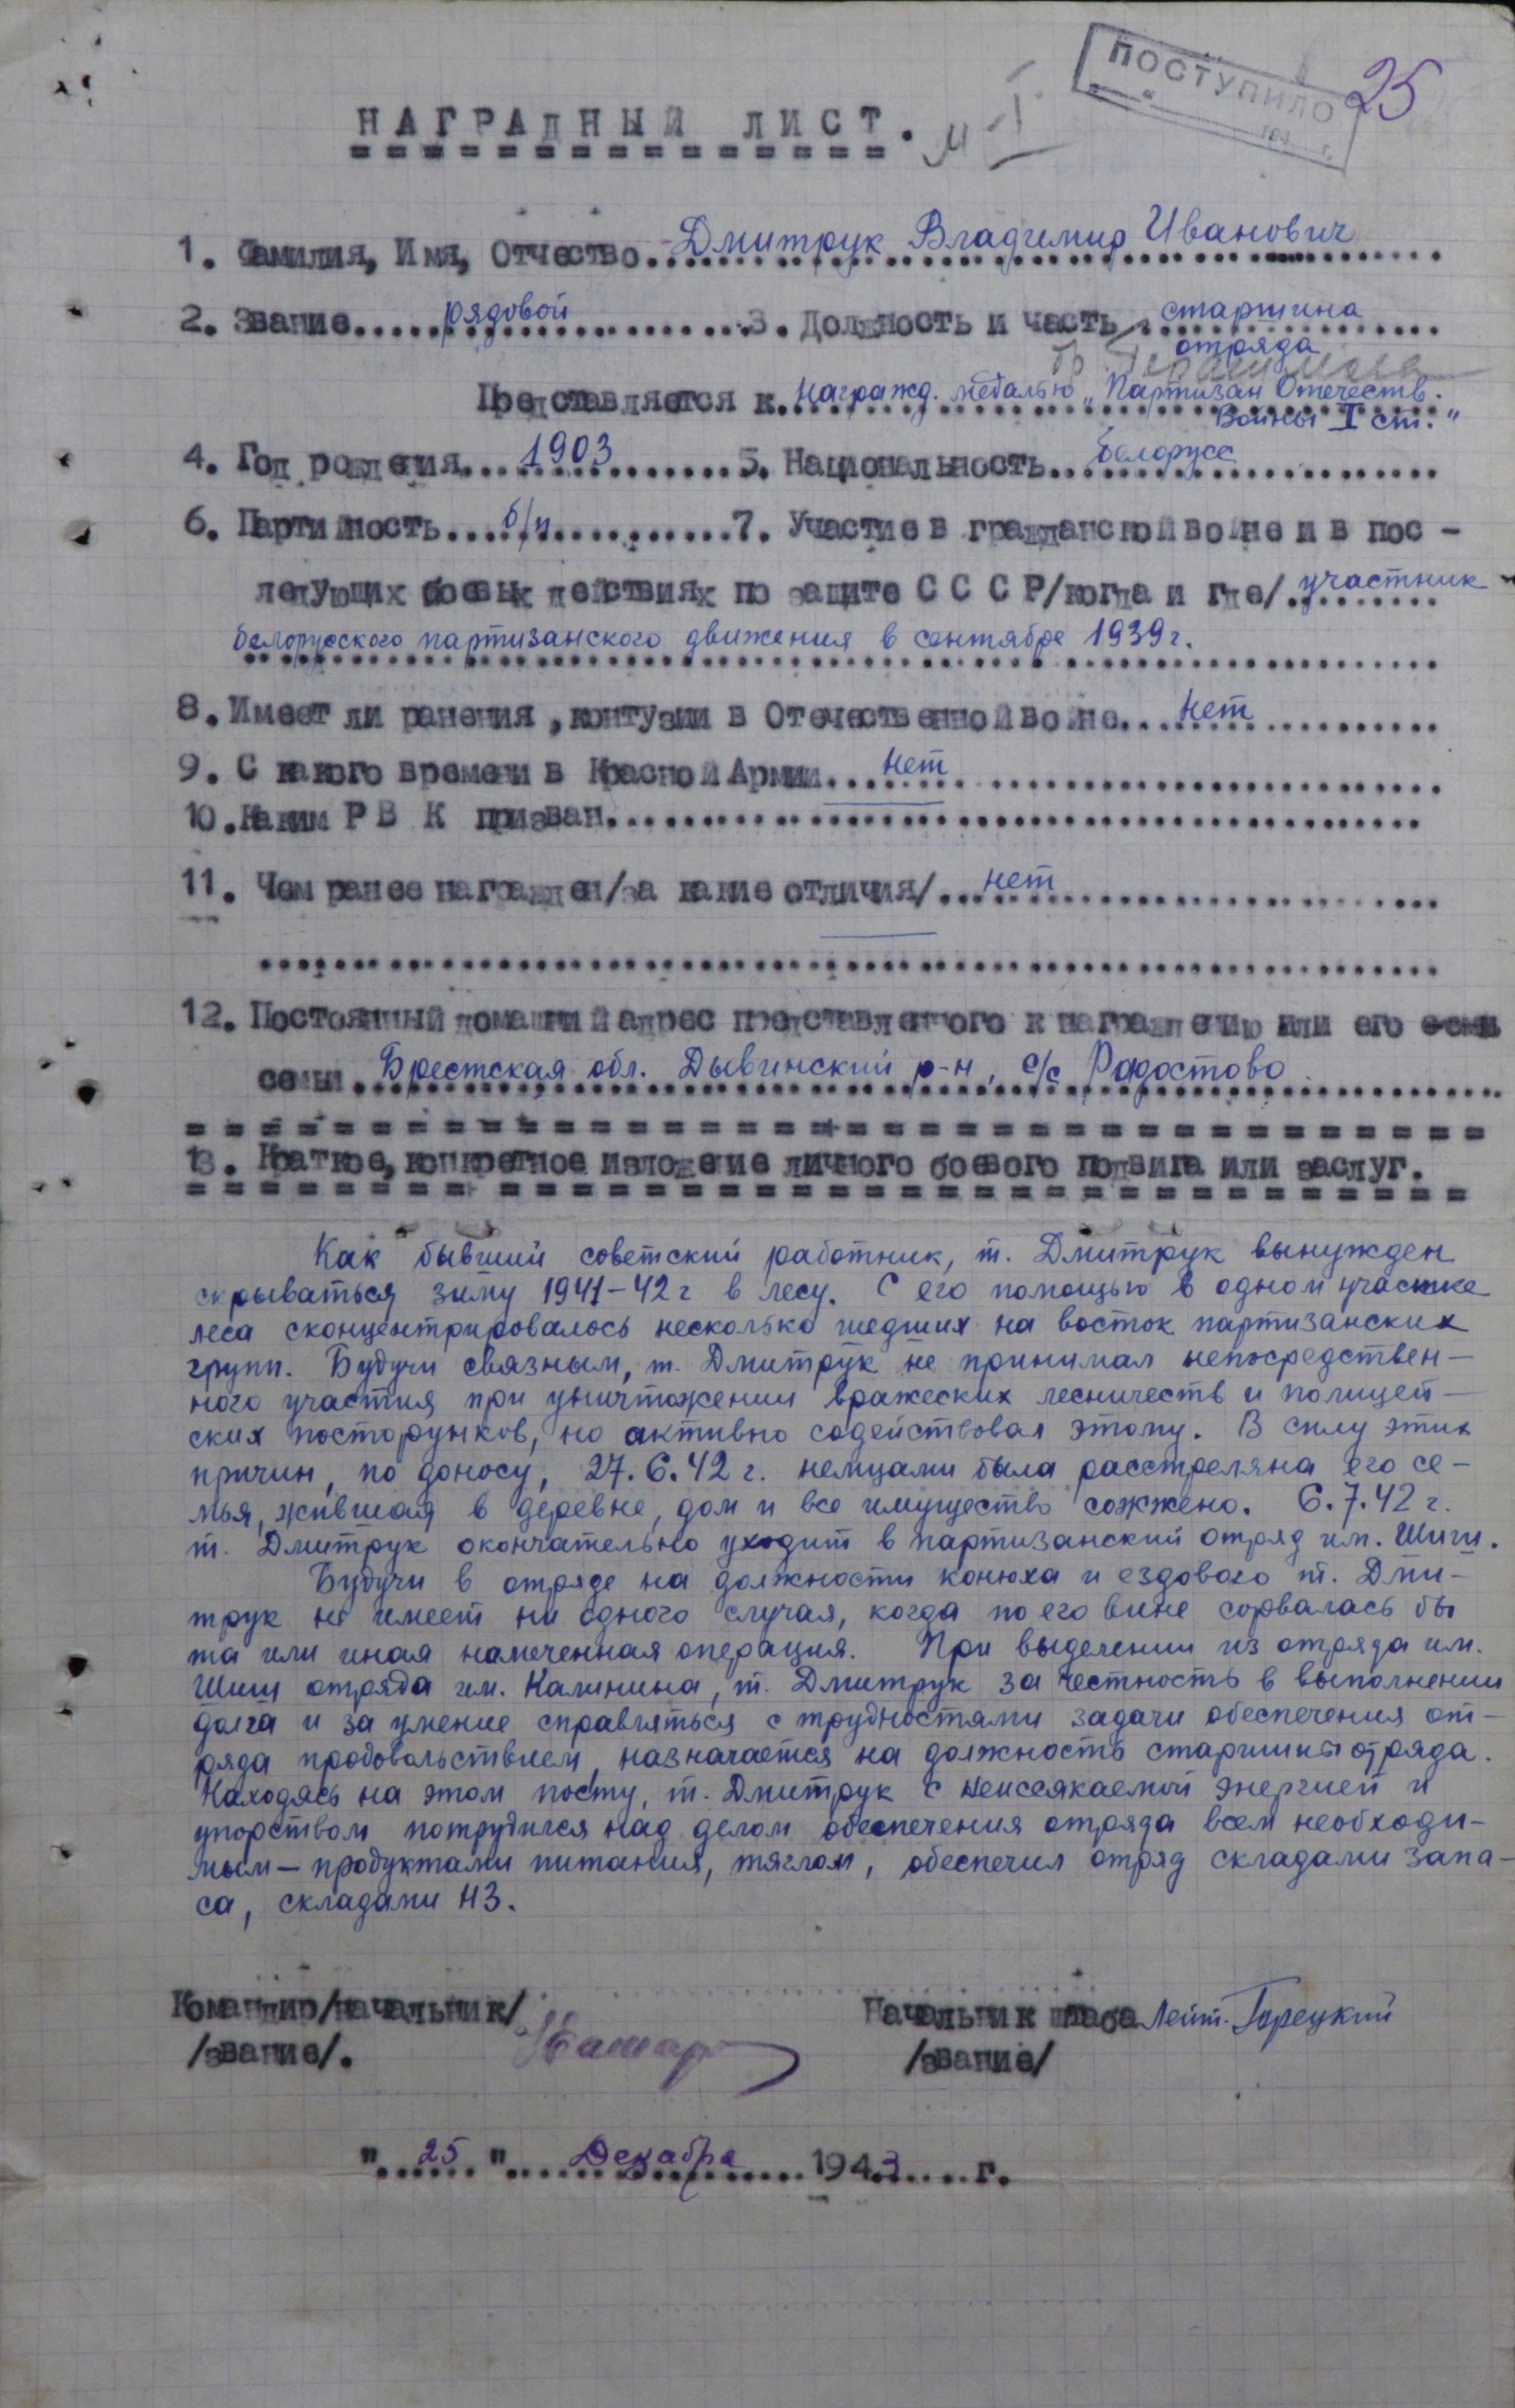 ПОСТУПИЛО
194 г.
25
НАГРАДНЫЙ ЛИСТ.
1. Фамилия, Имя, Отчество Дмитрук Владимир Иванович
2. Звание рядовой 3. Должность и часть старшина
отряда
Представляется к награжд. медалью „Партизан Отечеств.
Войны I ст."
4. Год рождения 1903 5. Национальность белорусс
6. Партийность б/п 7. Участие в гражданской войне и в пос -
ледующих боевых действиях по защите С С С Р/когда и где/ участник
белорусского партизанского движения в сентябре 1939 г.
8. Имеет ли ранения, контузии в Отечественной войне нет
9. С какого времени в Красной Армии нет
10. Каким Р В К призван
11. Чем ранее награжден/за какие отличия/ нет
12. Постоянный домашний адрес представленного к награждению или его
семьи Брестская обл. Дывинский р-н, с/с Радостово
13. Краткое, конкретное изложение личного боевого подвига или заслуг.
Как бывший советский работник, т. Дмитрук вынужден
скрываться зиму 1941-42 г в лесу. С его помощью в одном участке
леса сконцентрировалось несколько шедших на восток партизанских
групп. Будучи связным, т. Дмитрук не принимал непосредствен-
ного участия при уничтожении вражеских лесничеств и полицей-
ских постарунков, но активно содействовал этому. В силу этих
причин, по доносу, 27.6.42 г. немцами была расстреляна его се-
мья, жившая в деревне, дом и все имущество сожжено. 6.7.42 г.
т. Дмитрук окончательно уходит в партизанский отряд им. Шиш.
Будучи в отряде на должности конюха и ездового т. Дми-
трук не имеет ни одного случая, когда по его вине сорвалась бы
та или иная намеченная операция. При выделении из отряда им.
Шиш отряда им. Калинина, т. Дмитрук за честность в выполнении
долга и за умение справляться с трудностями задачи обеспечения от-
ряда продовольствием, назначается на должность старшины отряда.
Находясь на этом посту, т. Дмитрук с неиссякаемой энергией и
упорством потрудился над делом обеспечения отряда всем необходи-
мым - продуктами питания, тяглом, обеспечил отряд складами запа-
са, складами НЗ.
Командир/начальник/ Начальник штаба Лейт. Горецкий
/звание/. /звание/
"25" Декабря 1943 г.